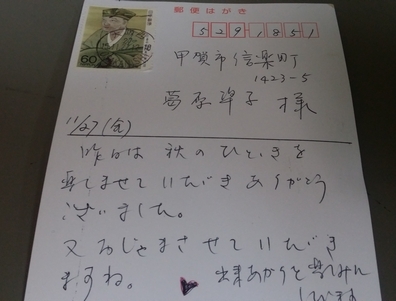 郵便はがき
60
529-1851
甲賀市信楽町
1423-5
葛原 子 様
11/27(金)
昨日は秋のひとときを
楽しませていただきありがとう
ございました。
又おじゃまさせていただき
ますね。
出来あがりを楽しみに
しています